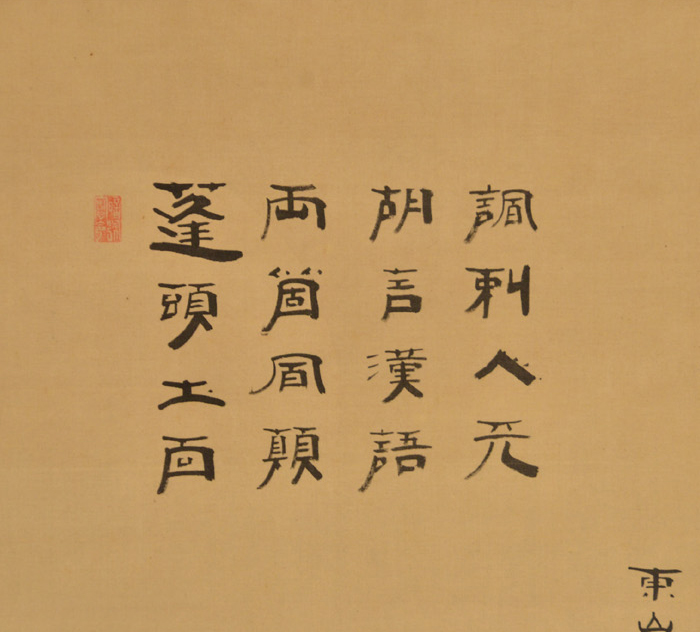 蓬頭土面
両箇同顛
胡言漢語
刺人
東山